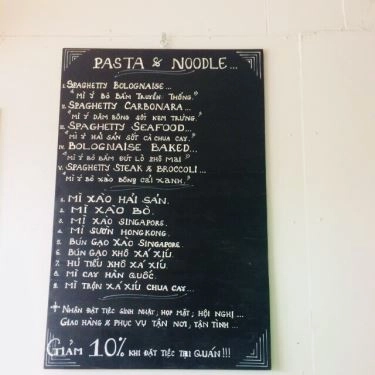 PASTA & NOODLE...
I. SPAGHETTY BOLOGNAISE...
"MÌ Ý BÒ BẰM TRUYỀN THỐNG."
II. SPAGHETTY CARBONARA...
"MÌ Ý DĂM BÔNG SỐT KEM TRỨNG."
III. SPAGHETTY SEAFOOD...
"MÌ Ý HẢI SẢN SỐT CÀ CHUA CAY."
IV. BOLOGNAISE BAKED...
"MÌ Ý BÒ BẰM ĐÚT LÒ PHÔ MAI"
V. SPAGHETTY STEAK & BROCCOLI...
"MÌ Ý BÒ XÀO BÔNG CẢI XANH."
1. MÌ XÀO HẢI SẢN.
2. MÌ XÀO BÒ.
3. MÌ XÀO SINGAPORE.
4. MÌ SƯỜN HONGKONG.
5. BÚN GẠO XÀO SINGAPORE.
6. BÚN GẠO KHÔ XÁ XÍU.
7. HỦ TIẾU KHÔ XÁ XÍU.
8. MÌ CAY HÀN QUỐC.
9. MÌ TRỘN XÁ XÍU CHUA CAY...
+ NHẬN ĐẶT TIỆC SINH NHẬT, HỌP MẶT, HỘI NGHỊ...
GIAO HÀNG & PHỤC VỤ TẬN NƠI, TẬN TÌNH...
GIẢM 10% KHI ĐẶT TIỆC TẠI QUÁN!!!